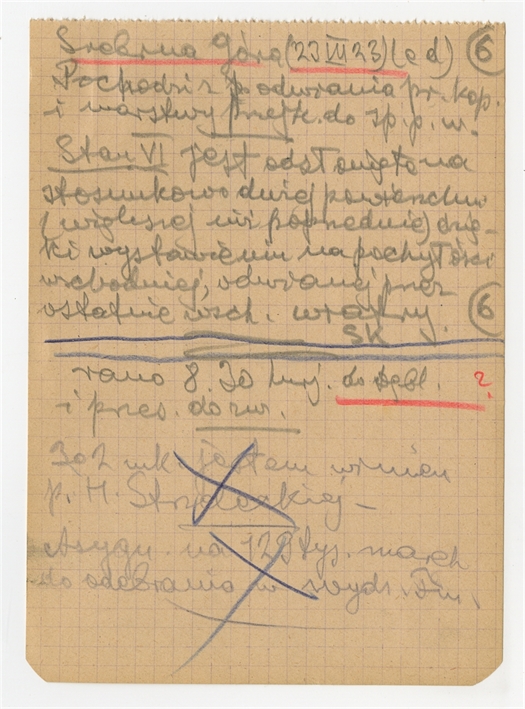 Srebrna Góra (23 III 23) (c d) 6
Pochodzi z podwiania pr. kop.
i warstwy przejk. do sp. p. w.
Stan. VI jest odsłonięto na
stosunkowo dużej powierzchni
(większej niż poprzednie) dzię-
ki wystawieniu na pochyłości
wschodniej, odwianej przez
ostatnie wsch. wiatry. 6
SK
rano 8.30 do Dębl. ?
i pres. do rw.
302 mk. jestem winien
p. H.
Asygn. na 129 tys. marek
do odebrania w wydz. Fin.